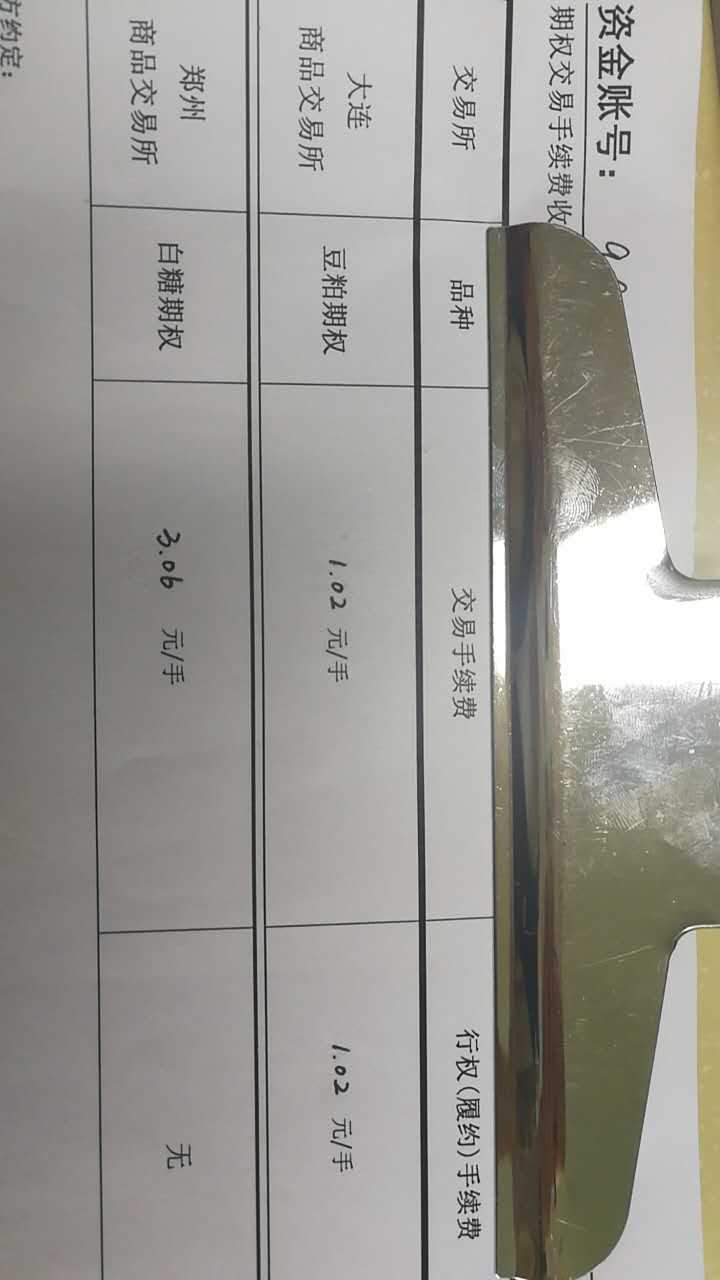 资金账号:
期权交易手续费收
交易所 品种 交易手续费 行权(履约)手续费
大连
商品交易所 豆粕期权 1.02 元/手 1.02 元/手
郑州
商品交易所 白糖期权 3.06 元/手 无
方约定: